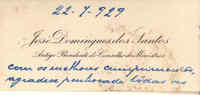 22-7-929
José Domingues dos Santos
Antigo Presidente do Conselho de Ministros
com os melhores cumprimentos,
agradece penhorado todas as